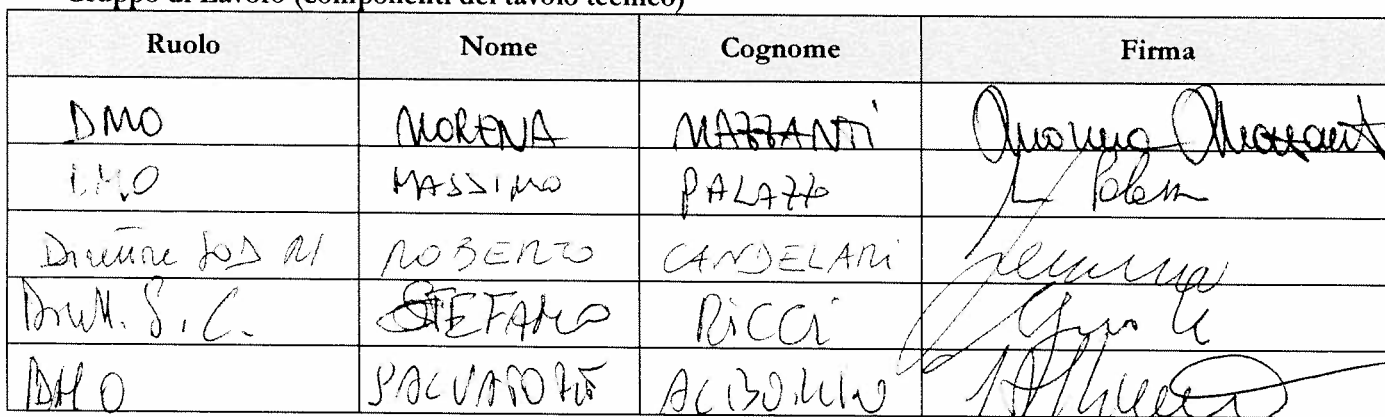 Gruppo di Lavoro (componenti del tavolo tecnico)
Ruolo Nome Cognome Firma
DMO MORENA MAZZANTI
DMO MASSIMO PALAZZO
Direttore SOD RI ROBERTO CANDELARI
Dirett. S.C. STEFANO RICCI
DMO SALVATORE